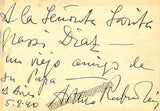 A la Señorita Sarita
Grassi Diaz —
un viejo amigo de
su Papa
B Aires
5.8.40 Arthur Rubinstein